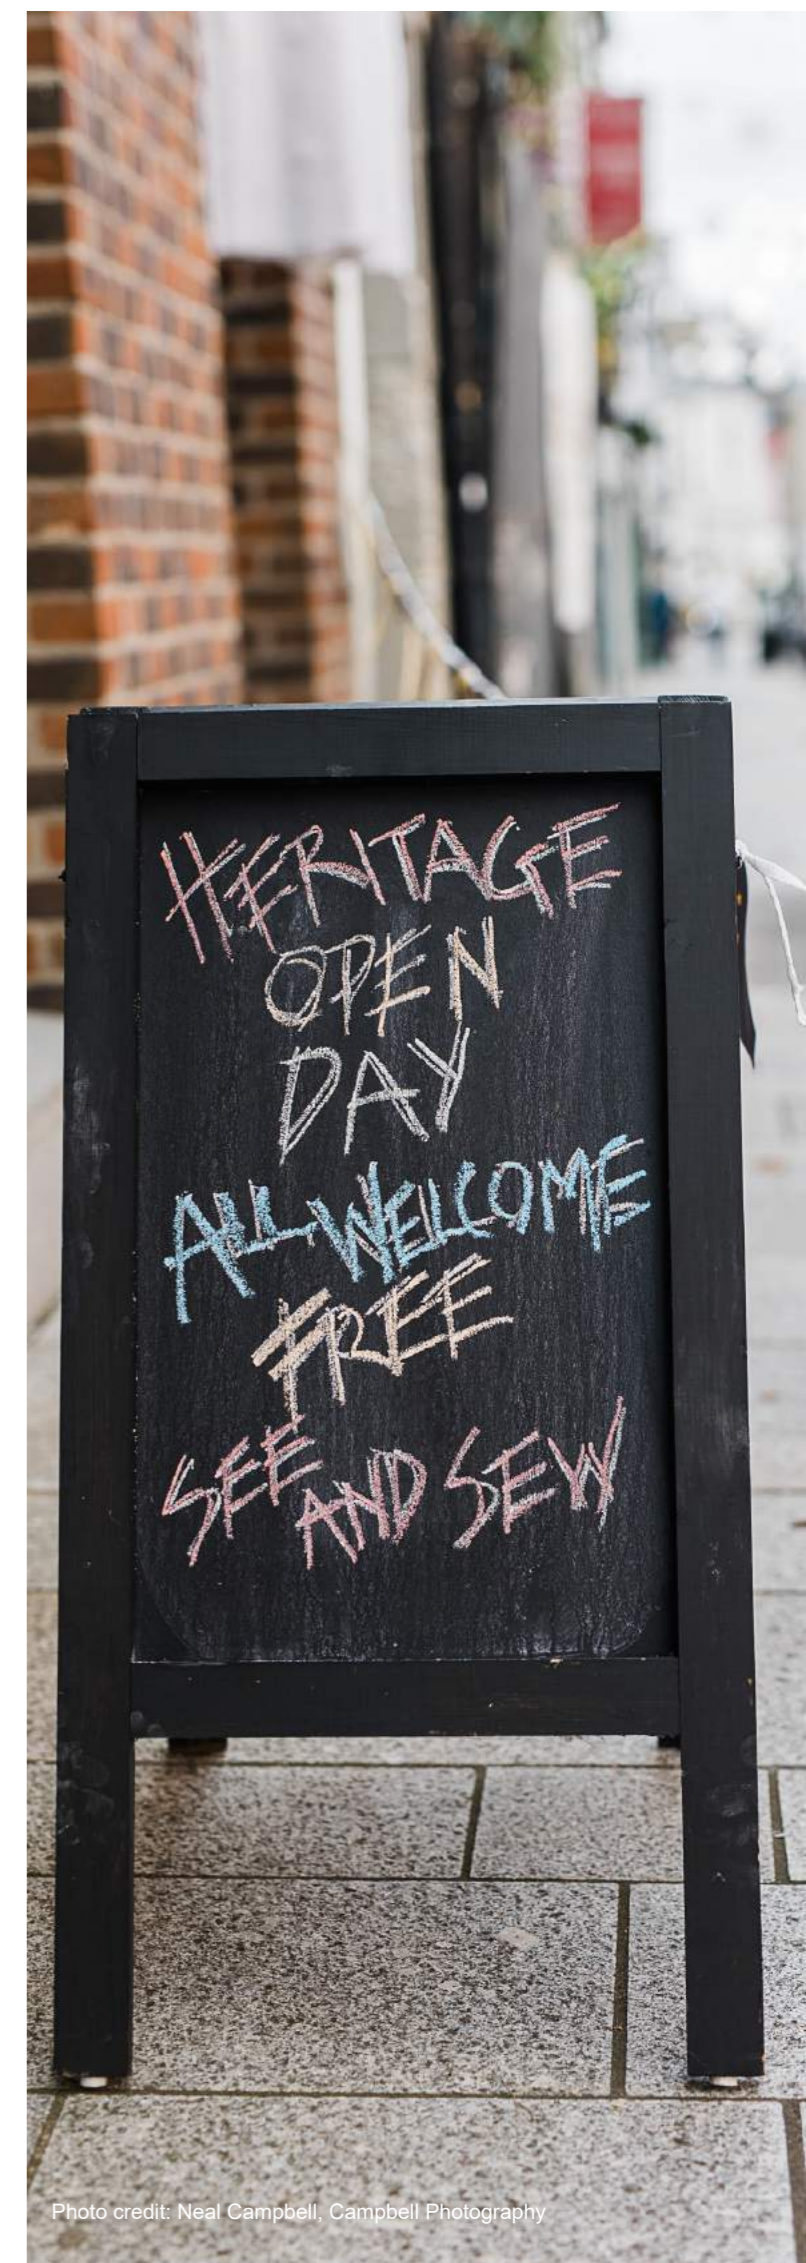 HERITAGE
OPEN
DAY
ALL WELCOME
FREE
SEE AND SEW
Photo credit: Neal Campbell, Campbell Photography